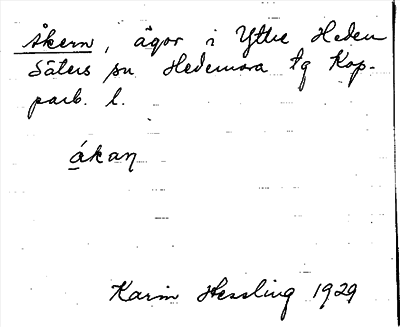 Åkern, ägor i Yttre Heden
Säters sn Hedemora tg Kop-
parb. l.
åkaņ
Karin Hessling 1929